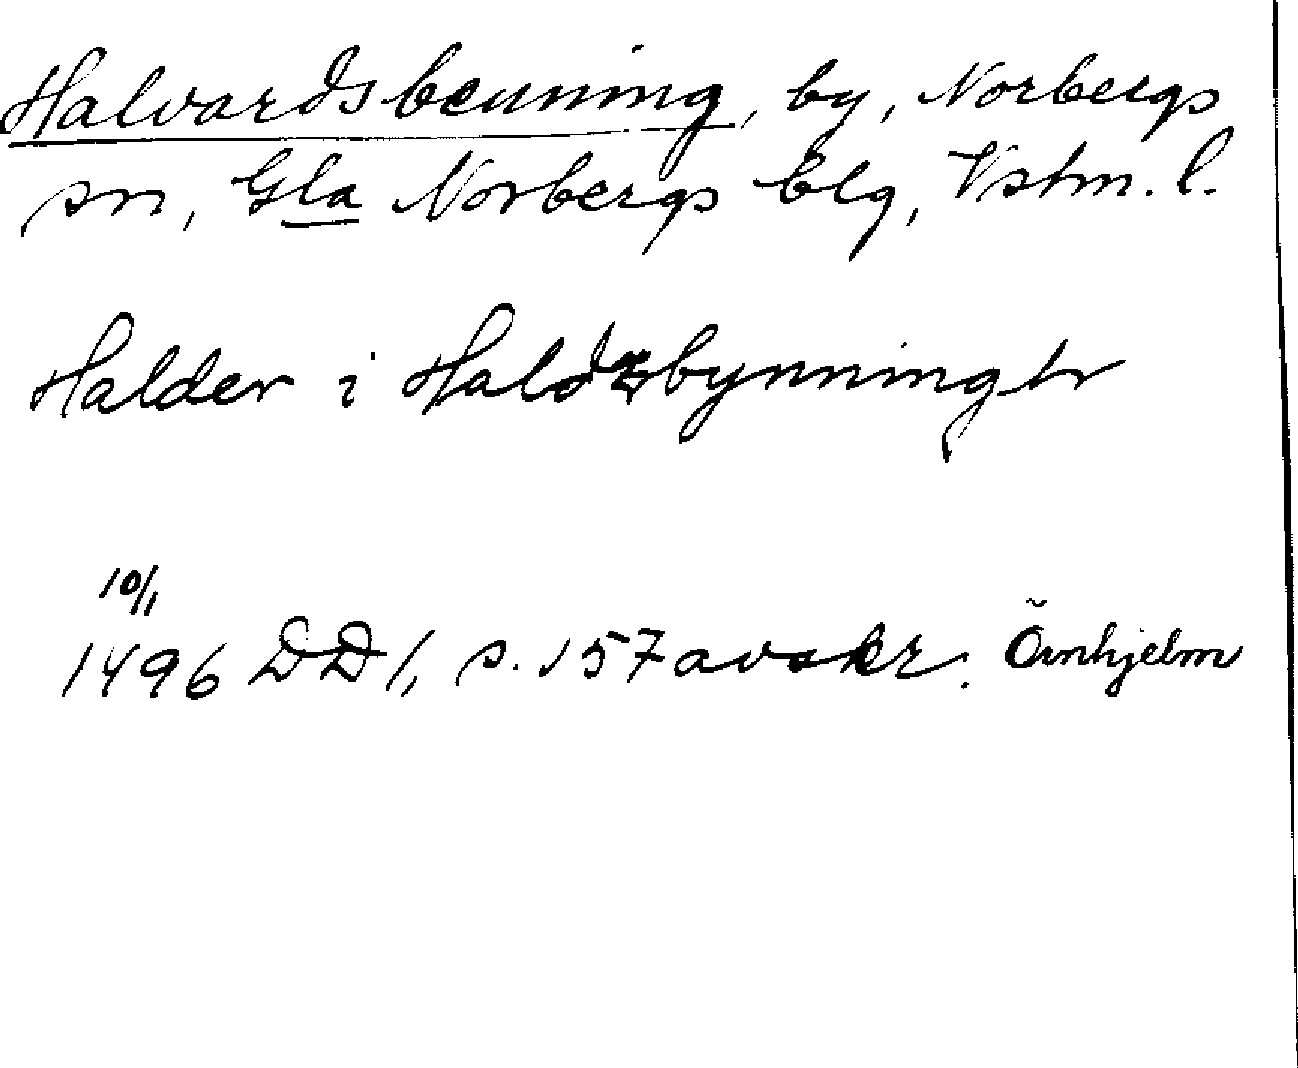 Halvardsbenning, by, Norbergs
sn, Gla Norbergs blg, Vstm. l.
Halder i Haldzbynningh
10/1
1496 DD 1, s. 157 avskr. Örnhjelm